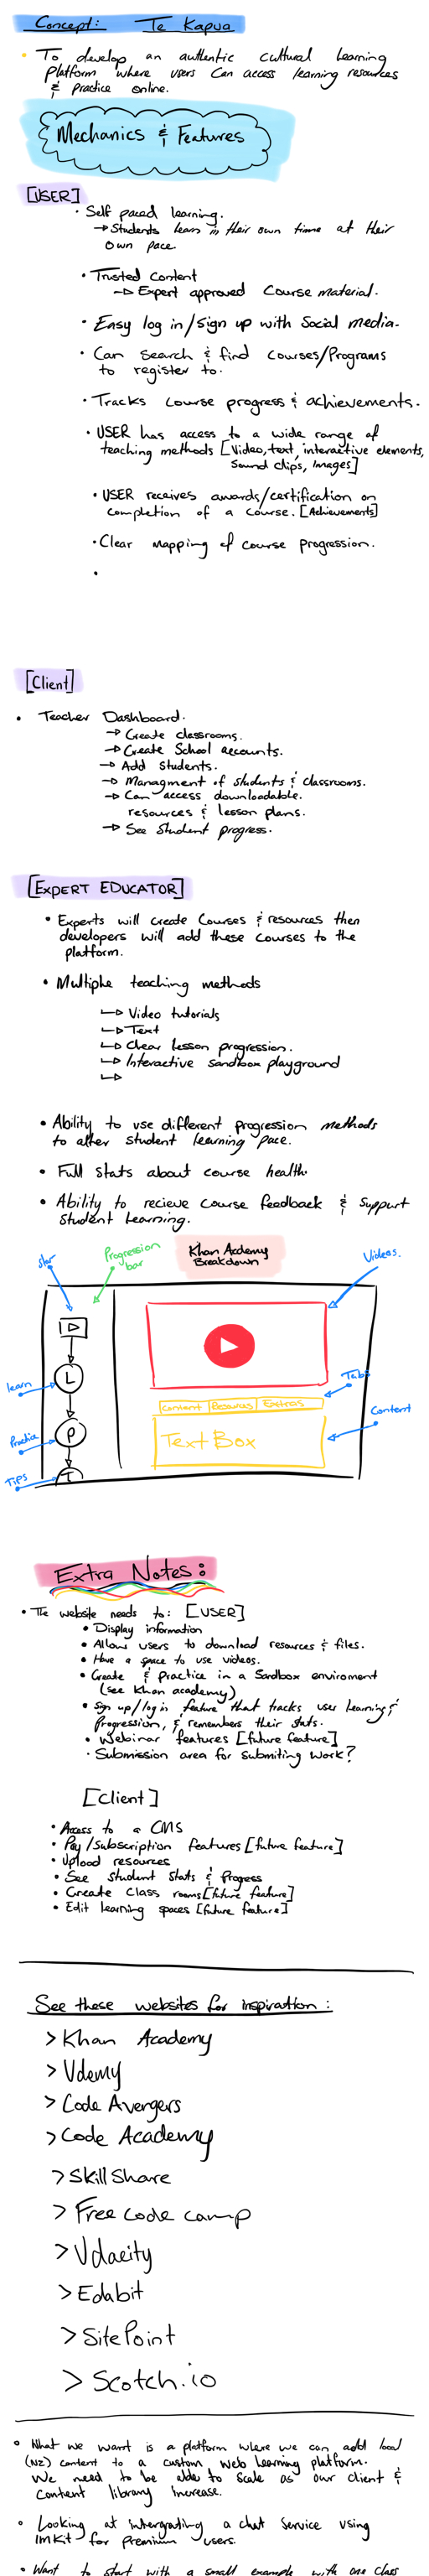 Concept: Te Kapua
• To develop an authentic cultural learning
platform where users can access learning resources
& practice online.
Mechanics & Features
[USER]
• Self paced learning.
→ Students learn in their own time at their
own pace.
• Trusted Content
→ Expert approved Course material.
• Easy log in/sign up with Social media.
• Can search & find courses/Programs
to register to.
• Tracks course progress & achievements.
• USER has access to a wide range of
teaching methods [Video, text, interactive elements,
Sound clips, Images]
• USER receives awards/certification on
completion of a course. [Achievements]
• Clear mapping of course progression.
•
[Client]
• Teacher Dashboard.
→ Create classrooms.
→ Create School accounts.
→ Add Students.
→ Managment of students & classrooms.
→ Can access downloadable.
resources & lesson plans.
→ See student progress.
[EXPERT EDUCATOR]
• Experts will create Courses & resources then
developers will add these courses to the
platform.
• Multiple teaching methods
↳ Video tutorials
↳ Text
↳ Clear lesson progression.
↳ Interactive sandbox playground
↳
• Ability to use different progression methods
to alter student learning pace.
• Full stats about course health.
• Ability to recieve course feedback & support
student learning.
Khan Acdemy
Breakdown
star
Progression
bar
Videos.
learn
L
Tabs
Content
Extras
Content
Practice
P
Text Box
Tips
T
Extra Notes:
• The website needs to: [USER]
• Display information
• Allow users to download resources & files.
• Have a space to use videos.
• Create & practice in a Sandbox enviroment
(see Khan academy)
• Sign up/log in feature that tracks user learning &
progression, & remembers their stats.
• Webinar features [future feature]
• Submission area for submiting work?
[Client]
• Access to a CMS
• Pay/Subscription features [future feature]
• Upload resources
• See student stats & Progess
• Create class rooms [future feature]
• Edit learning spaces [future feature]
See these websites for inspiration:
> Khan Academy
> Udemy
> Code Avengers
> Code Academy
> Skill Share
> Free code camp
> Udacity
> Edabit
> SitePoint
> Scotch.io
• What we want is a platform where we can add local
(NZ) content to a custom web learning platform.
We need to be able to scale as our client &
content library increase.
• Looking at intergrating a chat service using
IMKit for premium users.
• Want to start with a small example with one class